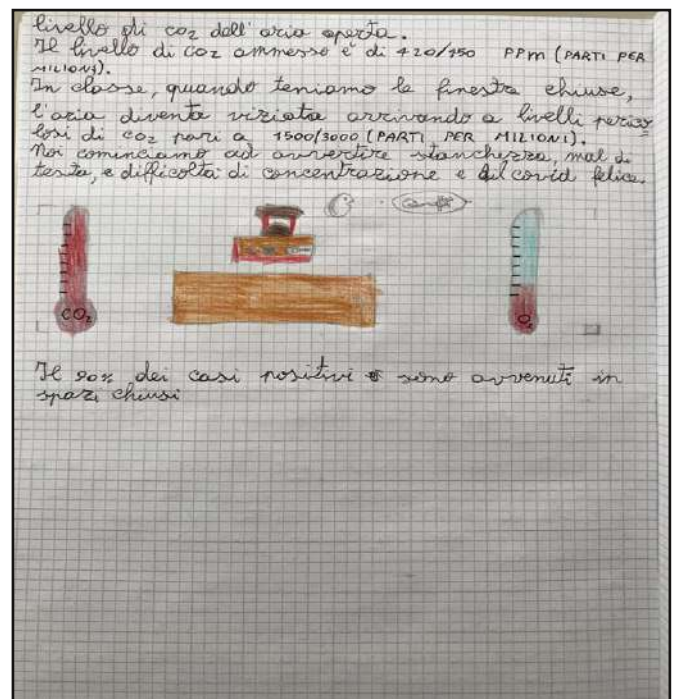 livello di co2 dall'aria aperta.
Il livello di co2 ammesso è di 420/450 PPm (PARTI PER
MILIONI).
In classe, quando teniamo le finestre chiuse,
l'aria diventa viziata arrivando a livelli perico
losi di co2 pari a 1500/3000 (PARTI PER MILIONI).
Noi cominciamo ad avvertire stanchezza, mal di
testa, e difficoltà di concentrazione e il covid felice.
CO2
O2
Il 90% dei casi positivi sono avvenuti in
spazi chiusi